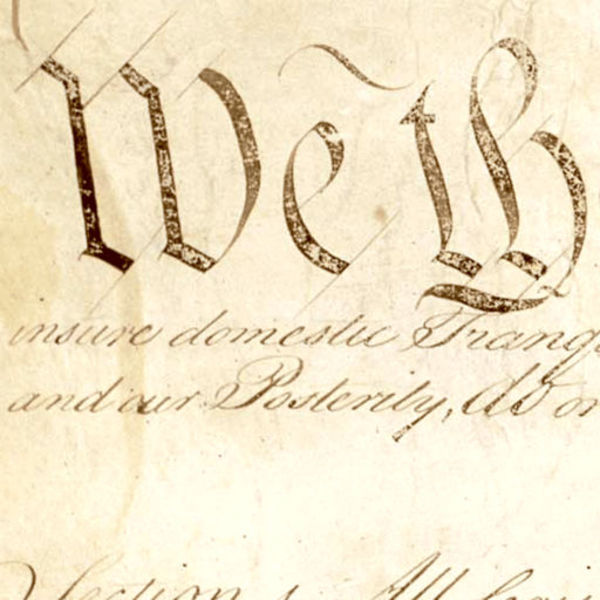 We th
insure domestic Tranq
and our Posterity, do or
Section. 1. All legi